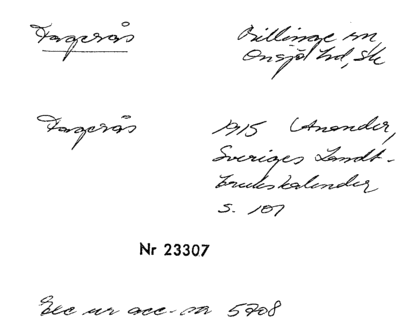 Fagerås Billinge sn
Onsjö hd, Sk
Fagerås 1915 (Anander,
Sveriges Landt-
brukskalender
s. 107
Nr 23307
Exc ur acc-nr 5708